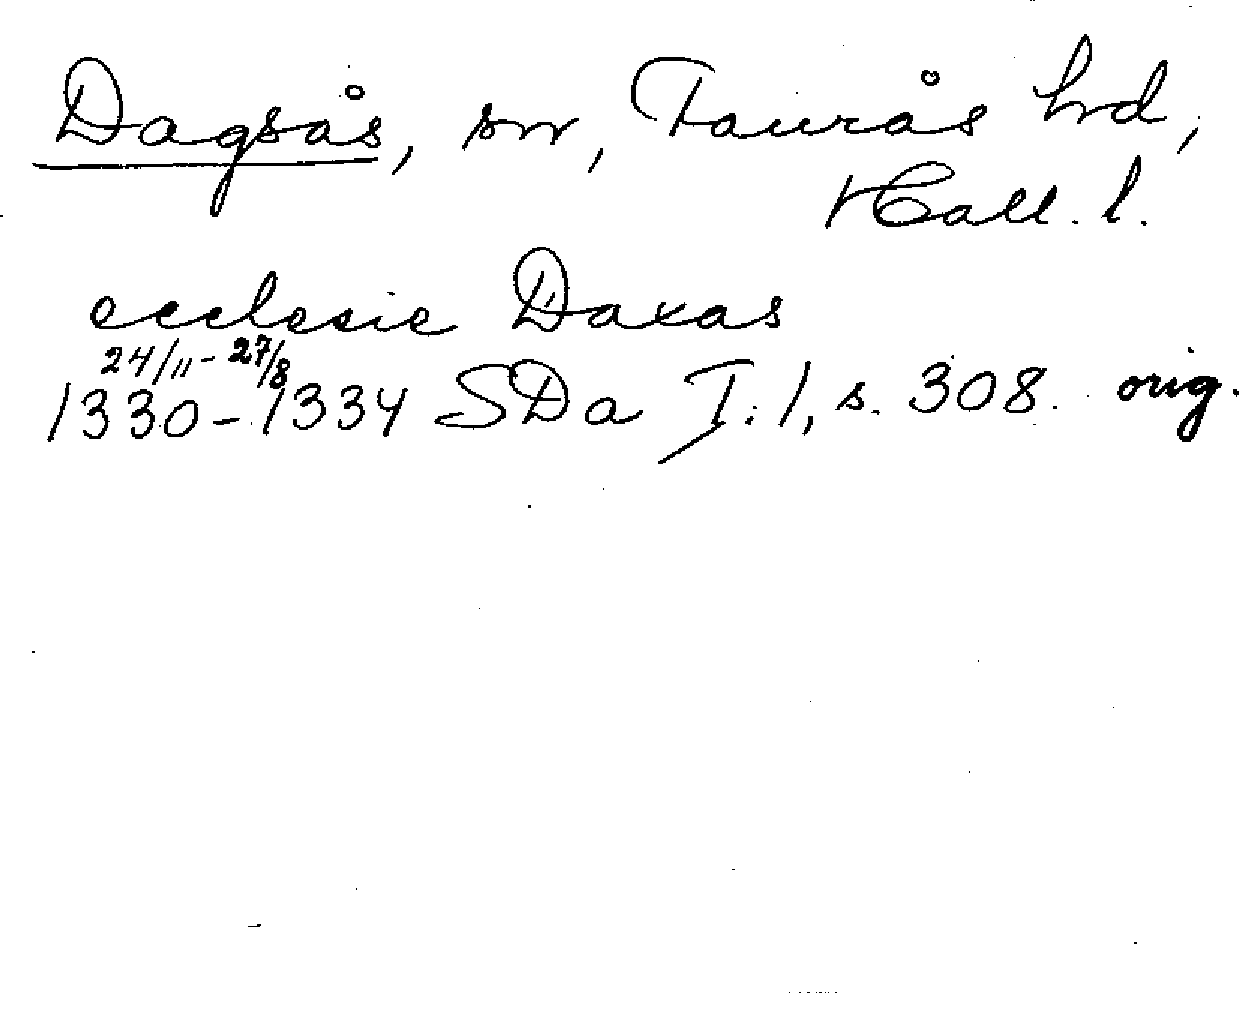 Dagsås, sn, Faurås hrd,
Hall. l.
ecclesie Daxas
24/11 - 27/8
1330-1334 SDa I. 1, s. 308. orig.